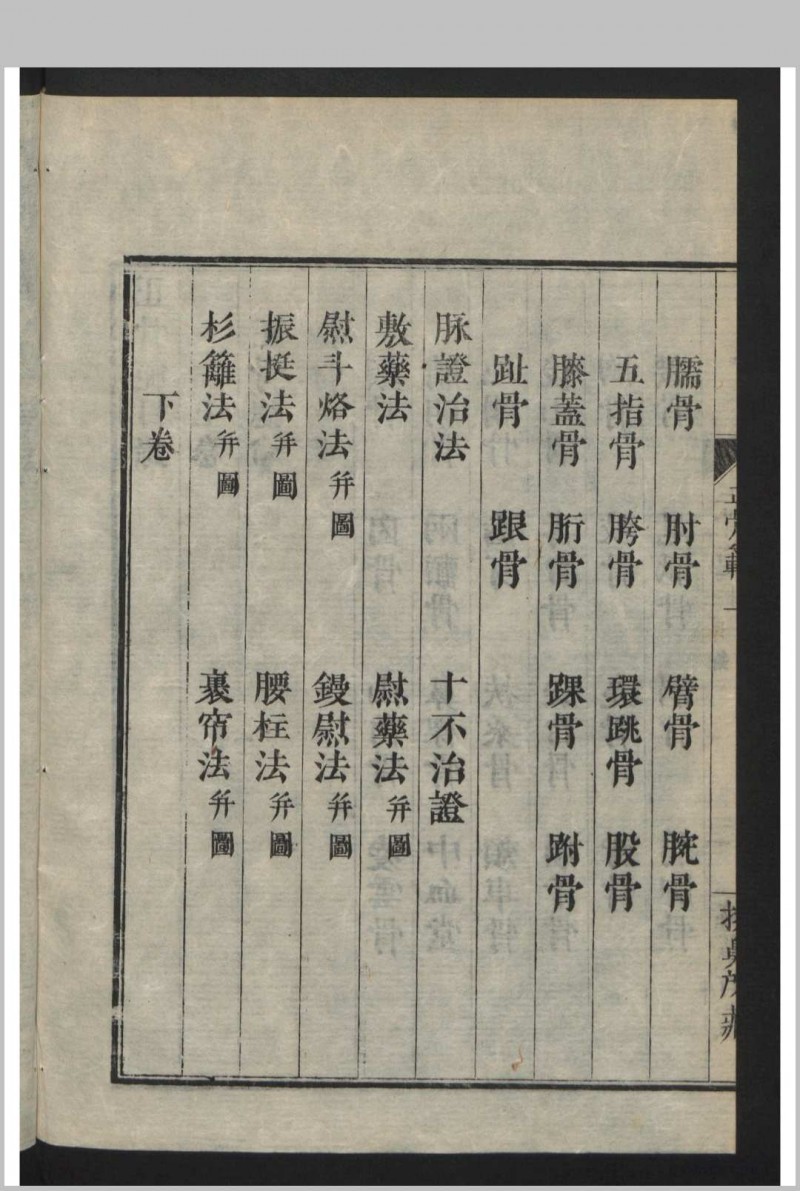 臑骨　肘骨　臂骨　腕骨
五指骨　胯骨　環跳骨　股骨
膝蓋骨　胻骨　踝骨　跗骨
趾骨　跟骨
脉證治法　十不治證
敷藥法　熨藥法并圖
熨斗烙法并圖　鏝熨法并圖
振挺法并圖　腰柱法并圖
杉籬法并圖　裹帘法并圖
下卷